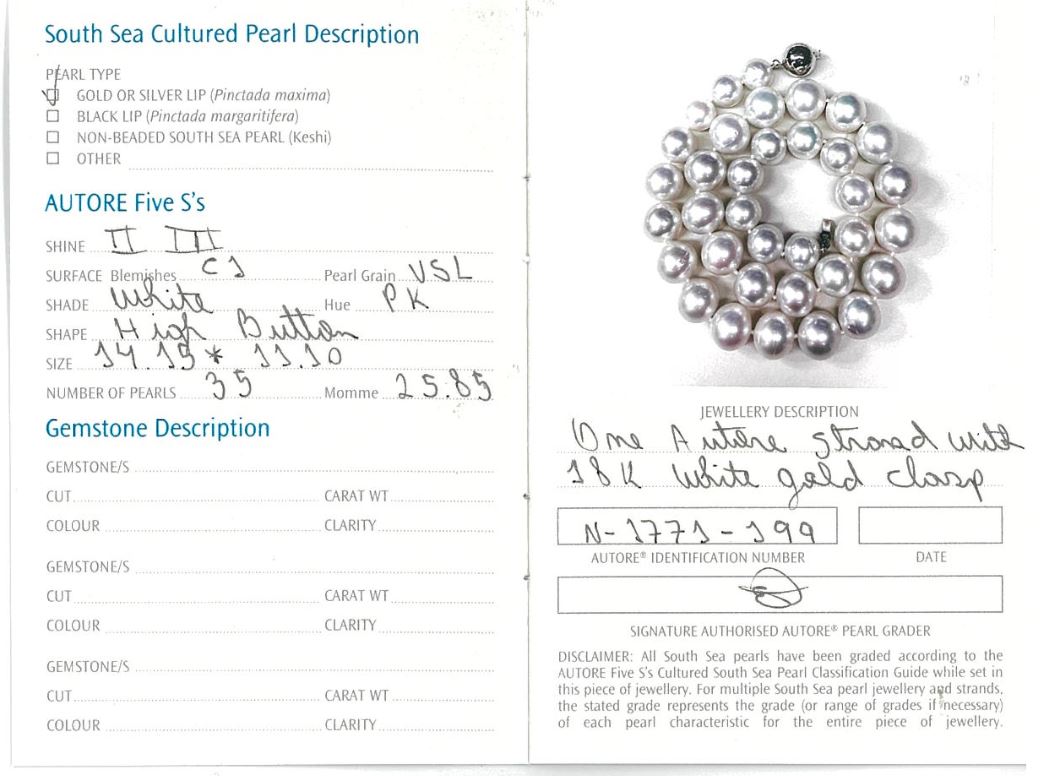 South Sea Cultured Pearl Description
PEARL TYPE
GOLD OR SILVER LIP (Pinctada maxima)
BLACK LIP (Pinctada margaritifera)
NON-BEADED SOUTH SEA PEARL (Keshi)
OTHER
AUTORE Five S's
SHINE II III
SURFACE Blemishes C1 Pearl Grain VSL
SHADE White Hue PK
SHAPE High Button
SIZE 14.15 * 11.10
NUMBER OF PEARLS 35 Momme 25.85
Gemstone Description
GEMSTONE/S
CUT CARAT WT
COLOUR CLARITY
GEMSTONE/S
CUT CARAT WT
COLOUR CLARITY
GEMSTONE/S
CUT CARAT WT
COLOUR CLARITY
JEWELLERY DESCRIPTION
One Autore strand with
18K White gold clasp
N-1771-199
AUTORE® IDENTIFICATION NUMBER DATE
SIGNATURE AUTHORISED AUTORE® PEARL GRADER
DISCLAIMER: All South Sea pearls have been graded according to the
AUTORE Five S's Cultured South Sea Pearl Classification Guide while set in
this piece of jewellery. For multiple South Sea pearl jewellery and strands,
the stated grade represents the grade (or range of grades if necessary)
of each pearl characteristic for the entire piece of jewellery.